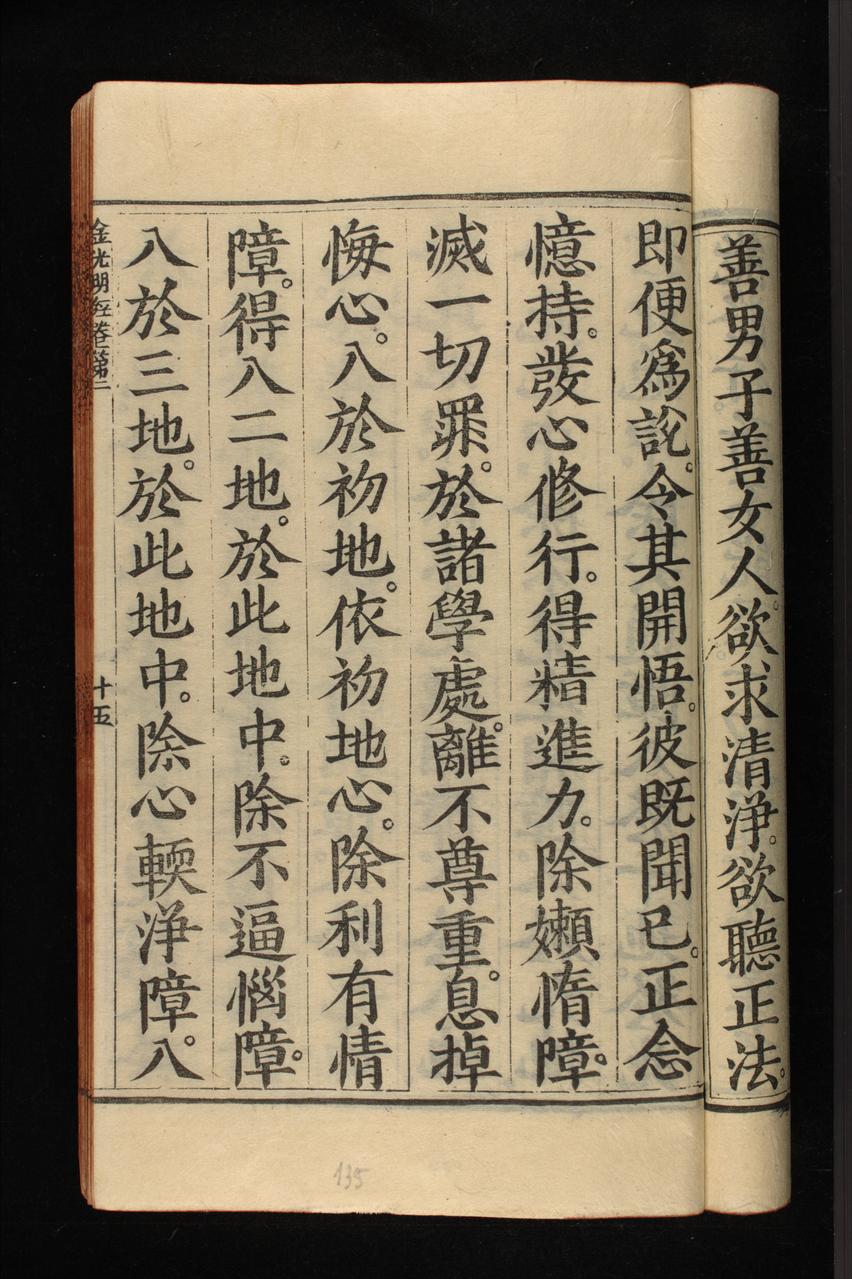 善男子善女人。欲求清淨。欲聽正法。
即便爲說。令其開悟。彼既聞已。正念
憶持。發心修行。得精進力。除嬾惰障。
滅一切罪。於諸學處。離不尊重。息掉
悔心。入於初地。依初地心。除利有情
障。得入二地。於此地中。除不逼惱障。
入於三地。於此地中。除心輭淨障。入
金光明經卷第二
十五
135